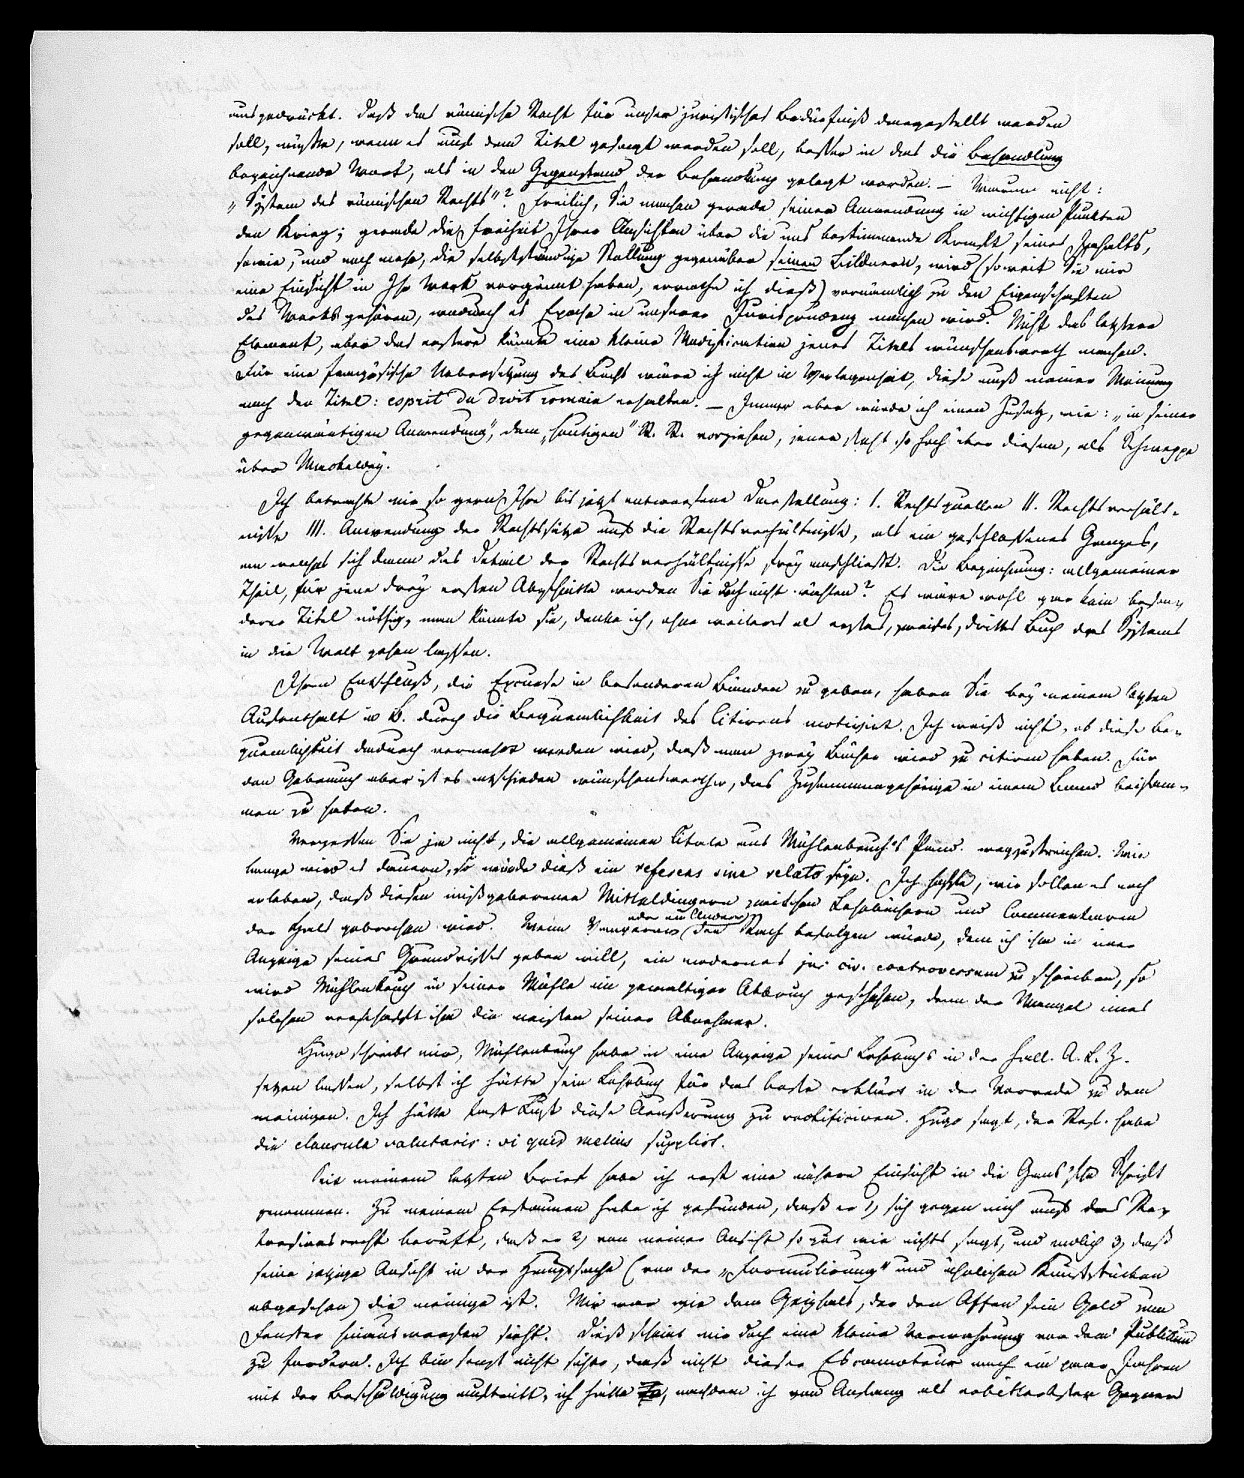 ausgedrückt. Daß das römische Recht für unser juristisches Bedürfniß dargestellt werden
soll, müßte, wenn es auf dem Titel gesagt werden soll, besser in das die Behandlung
bezeichnende Wort, als in den Gegenstand der Behandlung gelegt werden. – Warum nicht:
„System des römischen Rechts"? Freilich, Sie machen gerade seiner Anwendung in wichtigen Punkten
den Krieg; gerade die Freiheit Ihrer Ansichten über die uns bestimmende Kraft seines Inhalts,
sowie, und noch mehr, die selbstständige Stellung gegenüber seinen Bildnern, wird (soweit Sie mir
eine Einsicht in Ihr Werk vergönnt haben, errathe ich dieß) vornämlich zu den Eigenschaften
des Werks gehören, wodurch es Epoche in unserer Jurisprudenz machen wird. Nicht das letztere
Element, aber das erstere könnte eine kleine Modification jenes Titels wünschenswerth machen.
Für eine französische Uebersetzung des Buchs wäre ich nicht in Verlegenheit, diese muß meiner Meinung
nach den Titel: esprit du droit romain erhalten. – Immer aber würde ich einen Zusatz, wie: „in seiner
gegenwärtigen Anwendung", dem „heutigen" R. R. vorziehen, jener steht so hoch über diesem, als Schweppe
über Mackeldey.
Ich betrachte mir so gern Ihre bis jetzt entworfene Darstellung: I. Rechtsquellen II. Rechtsverhält-
nisse III. Anwendung der Rechtssätze auf die Rechtsverhältnisse, als ein geschlossenes Ganzes,
an welches sich dann das Detail der Rechtsverhältnisse frey anschließt. Die Bezeichnung: allgemeiner
Theil, für jene drey ersten Abschnitte werden Sie doch nicht wählen? Es wäre wohl gar kein beson-
derer Titel nöthig, man könnte sie, denke ich, ohne weiteres als erstes, zweites, drittes Buch des Systems
in die Welt gehen lassen.
Ihren Entschluß, die Excurse in besonderen Bänden zu geben, haben Sie bey meinem letzten
Aufenthalt in B. durch die Bequemlichkeit des Citirens motivirt. Ich weiß nicht, ob diese Be-
quemlichkeit dadurch vermehrt werden wird, daß man zwey Bücher wird zu citiren haben. Für
den Gebrauch aber ist es entschieden wünschenswerther, das Zusammengehörige in einem Band beisam-
men zu haben.
Vergessen Sie ja nicht, die allgemeinen Citate aus Mühlenbruch's Pand. wegzustreichen. Wie
lange wird es dauern, so würde dieß ein referens sine relato seyn. Ich hoffe, wir sollen es noch
erleben, daß diesen mißgeborenen Mitteldingern zwischen Lehrbüchern und Commentaren
der Hals gebrochen wird. Wenn Vangerow (oder ein Anderer) den Rath befolgen würde, den ich ihm in einer
Anzeige seines Grundrisses geben will, ein modernes jus civ. controversum zu schreiben, so
wird Mühlenbruch in seiner Mühle ein gewaltiger Abbruch geschehen, denn der Mangel eines
solchen verschafft ihm die meisten seiner Abnehmer.
Hugo schreibt mir, Mühlenbruch habe in eine Anzeige seines Lehrbuchs in der Hall. A. L. Z.
setzen lassen, selbst ich hätte sein Lehrbuch für das beste erklärt in der Vorrede zu dem
meinigen. Ich hätte fast Lust diese Aeußerung zu rectificiren. Hugo sagt, der Rec. habe
die clausula salutaris: si quid melius supplirt.
Seit meinem letzten Brief habe ich erst eine nähere Einsicht in die Gans'sche Schrift
genommen. Zu meinem Erstaunen habe ich gefunden, daß er 1) sich gegen mich auf das
 beruft, daß er 2) von meiner Ansicht so gut wie nichts sagt, und endlich 3) daß
seine jetzige Ansicht in der Hauptsache (von der „Formulirung" und ähnlichen Kunststücken
abgesehen) die meinige ist. Mir war wie dem Geizhals, der den Affen sein Geld zum
Fenster hinaus werfen sieht. Dieß scheint mir doch eine kleine Verwahrung vor dem Publikum
zu fordern. Ich bin sonst nicht sicher, daß nicht dieser Escamoteur nach ein paar Jahren
mit der Beschuldigung auftritt, ich hätte, nachdem ich von Anfang als erbittertster Gegner